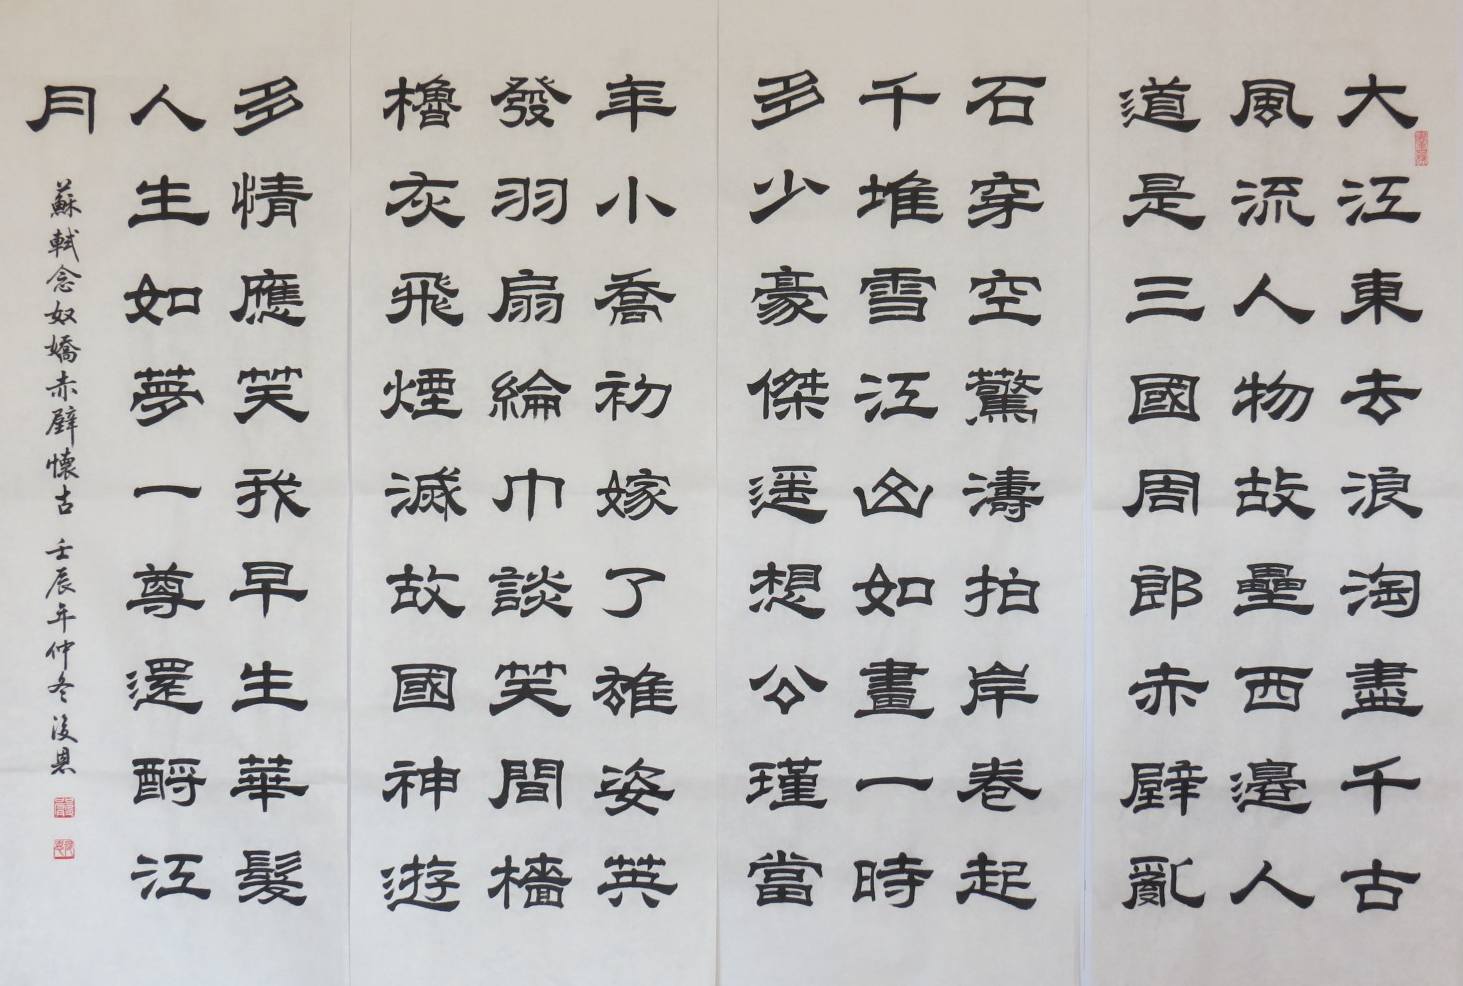 大江東去浪淘盡千古
風流人物故壘西邊人
道是三國周郎赤壁亂
石穿空驚濤拍岸卷起
千堆雪江山如畫一時
多少豪傑遥想公瑾當
年小喬初嫁了雄姿英
發羽扇綸巾談笑間檣
櫓灰飛煙滅故國神遊
多情應笑我早生華髮
人生如夢一尊還酹江
月
蘇軾念奴嬌赤壁懷古 壬辰年仲冬後恩